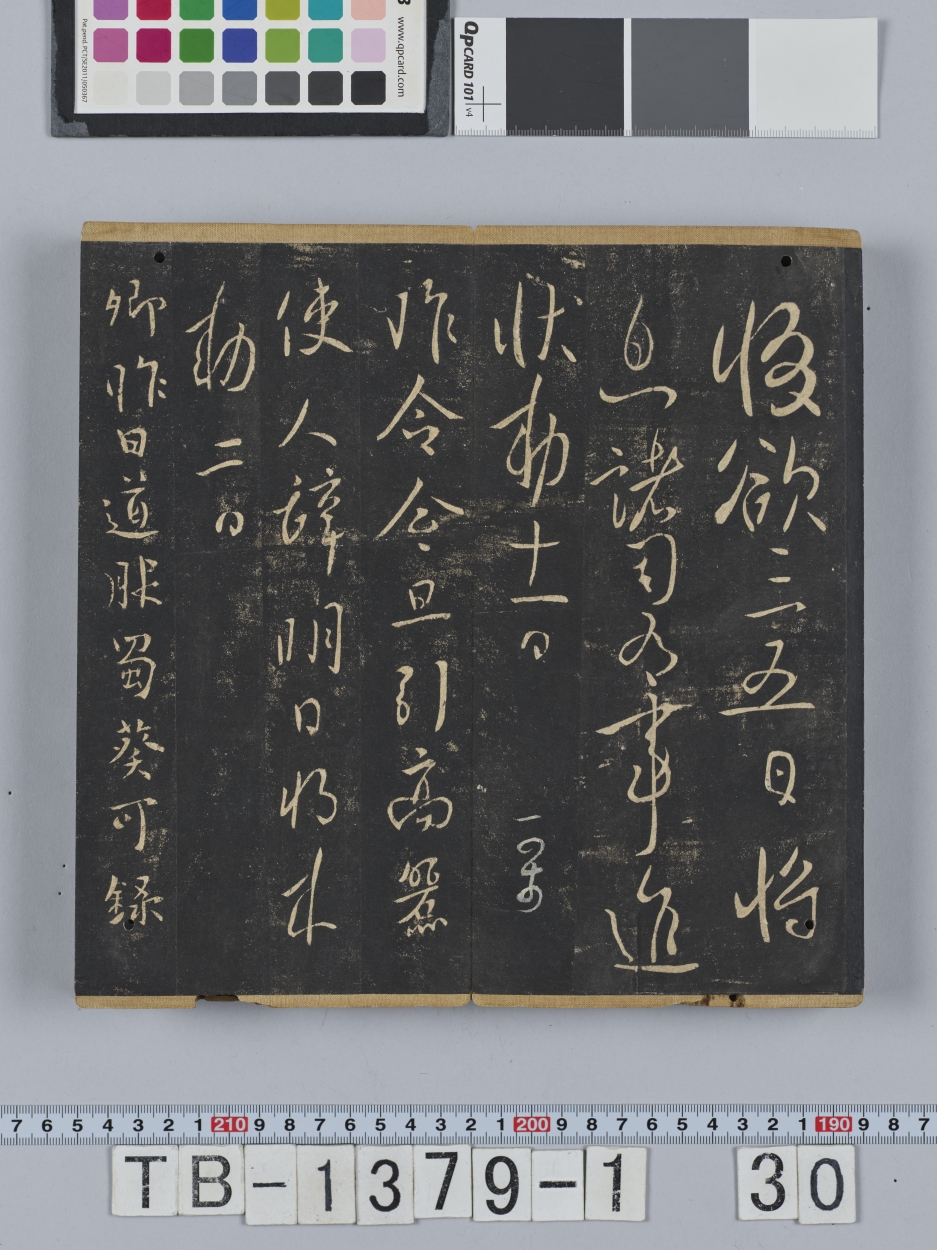 www.qpcard.com
Pat.pend. PCT/SE2011/050367
QPCARD 101 v4
後欲三五日將
息諸司有事進
狀勅十一日
昨令今旦引高麗
使人辭明日將來
勅二日
卿昨日道蜀葵可錄
7 6 5 4 3 2 1 210 9 8 7 6 5 4 3 2 1 200 9 8 7 6 5 4 3 2 1 190 9 8 7
TB-1379-1 30